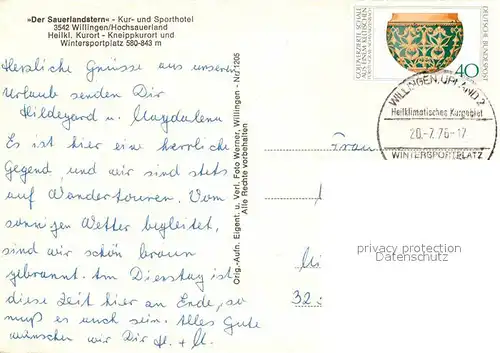 »Der Sauerlandstern« - Kur- und Sporthotel
3542 Willingen/Hochsauerland
Heilkl. Kurort - Kneippkurort und
Wintersportplatz 580-843 m
Herzliche Grüsse aus unserem
Urlaub senden Dir
Hildegard u. Magdalena
Es ist hier eine herrliche
Gegend, und wir sind stets
auf Wandertouren. Vom
sonnigen Wetter begleitet,
sind wir schön braun
gebrannt. Am Dienstag ist
diese Zeit hier am Ende, so
muß es auch sein. Alles Gute
wünschen wir Dir H. + M.
Orig.-Aufn. Eigent. u. Verl. Foto Werner, Willingen - Nr. 1205
Alle Rechte vorbehalten
GOLDVERZIERTE SCHALE
AUS EINEM KELTISCHEN
DEUTSCHE BUNDESPOST
40
WILLINGEN, UPLAND 2
Heilklimatisches Kurgebiet
20.-7.76-17
WINTERSPORTPLATZ
Frau
32
privacy protection
Datenschutz